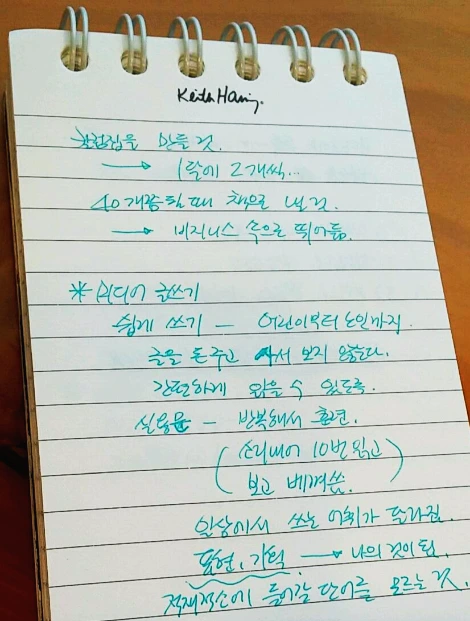 Keith Haring.
만들 것.
→ 1달에 2개씩...
40개쯤 될 때 책으로 낼 것.
→ 비지니스 속으로 뛰어듦.
* 미디어 글쓰기
쉽게 쓰기 - 어린이부터 노인까지.
글을 돈 주고 사서 보지 않는다.
간편하게 읽을 수 있도록.
실용문 - 반복해서 훈련.
(소리내어 10번 읽고
보고 베껴씀.)
일상에서 쓰는 어휘가 달라짐.
표현, 기획 → 나의 것이 됨.
적재적소에 들어갈 단어를 고르는 것.